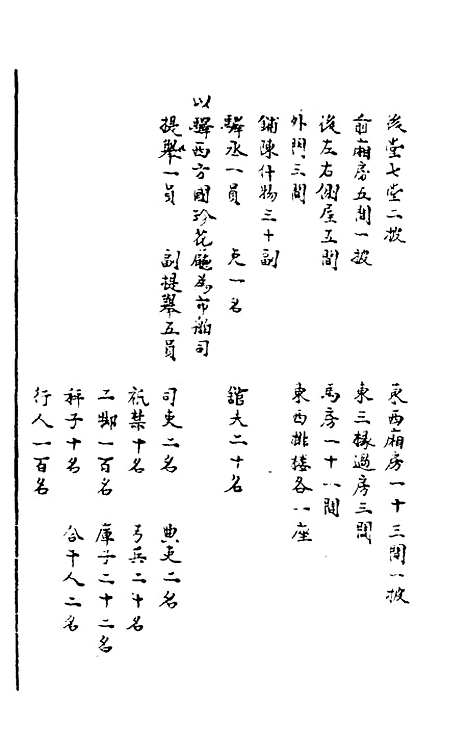 後堂七堂二披　東西廂房一十三間一披
前廂房五間一披　東三椽過房三間
後左右側屋五間　馬房一十八間
外門三間　東西挑樓各一座
鋪陳什物三十副
驛丞一員　吏一名　館夫二十名
以驛西方國珍花廳為市舶司
提舉一員　副提舉五員　司吏二名　典吏二名
祇禁十名　弓兵二十名
工脚一百名　庫子二十二名
秤子十名　合干人二名
行人一百名